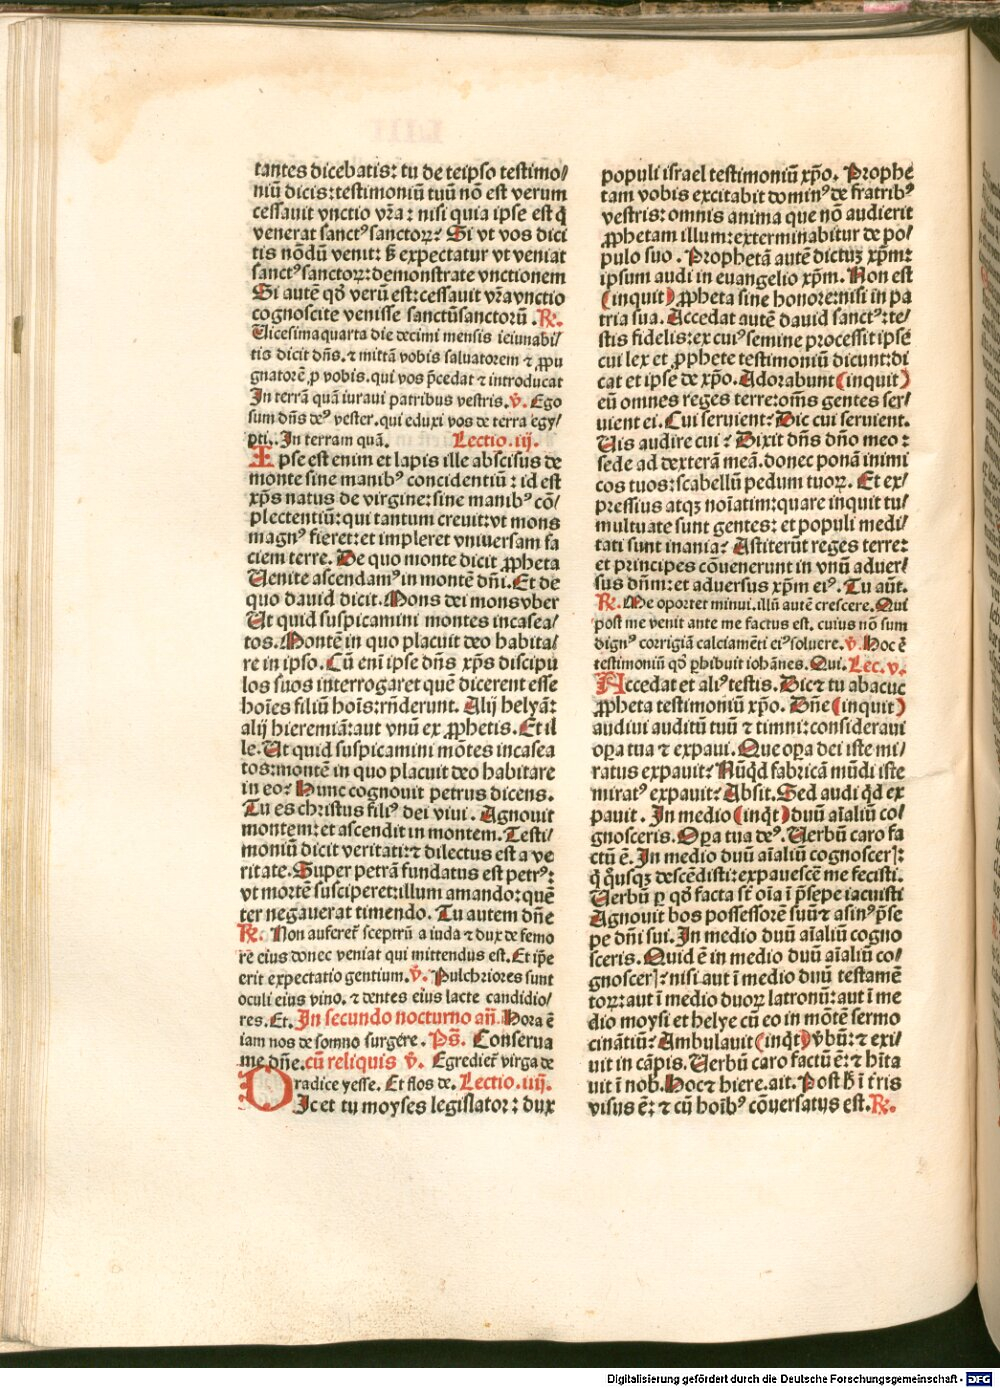 tantes dicebatis: tu de teipso testimo/
niū dicis: testimoniū tuū nō est verum
cessauit vnctio vr̄a: nisi quia ipse est q̇
venerat sanctꝰ sanctoꝝ? Si vt vos dici
tis nōdū venit: sꝫ expectatur vt veniat
sanctꝰ sanctoꝝ: demonstrate vnctionem
Si autē qḋ verū est: cessauit vr̄a vnctio
cognoscite venisse sanctū sanctorū. ℞.
Vicesimaquarta die decimi mensis ieiunabi/
tis dicit dn̄s. ⁊ mittā vobis saluatorem ⁊ ꝓpu
gnatorē ꝓ vobis. qui vos p̄cedat ⁊ introducat
In terrā quā iuraui patribus vestris. ℣. Ego
sum dn̄s deꝰ vester. qui eduxi vos de terra egy/
pti. In terram quā. Lectio. iij.
Ipse est enim et lapis ille abscisus de
monte sine manibꝰ concidentiū: id est
xp̄s natus de virgine: sine manibꝰ cō/
plectentiū: qui tantum creuit: vt mons
magnꝰ fieret: et impleret vniuersam fa
ciem terre. De quo monte dicit ꝓpheta
Uenite ascendamꝰ in montē dn̄i. Et de
quo dauid dicit. Mons dei mons vber
Ut quid suspicamini montes incasea/
tos. Montē in quo placuit deo habita/
re in ipso. Cū eni ipse dn̄s xp̄s discipu
los suos interrogaret quē dicerent esse
hoīes filiū hoīs: rn̄derunt. Alij helyā:
alij hieremiā: aut vnū ex ꝓphetis. Et il
le. Ut quid suspicamini mōtes incasea
tos: montē in quo placuit deo habitare
in eo? Hunc cognouit petrus dicens.
Tu es christus filiꝰ dei viui. Agnouit
montem: et ascendit in montem. Testi/
moniū dicit veritati: ⁊ dilectus est a ve
ritate. Super petrā fundatus est petrꝰ:
vt mortē susciperet: illum amando: quē
ter negauerat timendo. Tu autem dn̄e
℞. Non auferet sceptrū a iuda ⁊ dux de femo
re eius donec veniat qui mittendus est. Et ip̄e
erit expectatio gentium. ℣. Pulchriores sunt
oculi eius vino. ⁊ dentes eius lacte candidio/
res. Et. In secundo nocturno an̄. Hora ē
iam nos de somno surgere. Ps̄. Conserua
me dn̄e. cū reliquis ℣. Egrediet virga de
radice yesse. Et flos de. Lectio. iiij.
DIc et tu moyses legislator: dux
populi israel testimoniū xp̄o. Prophe
tam vobis excitabit dominꝰ de fratribꝰ
vestris: omnis anima que nō audierit
ꝓphetam illum: exterminabitur de po/
pulo suo. Prophetā autē dictuꝫ xp̄m:
ipsum audi in euangelio xp̄m. Non est
(inquit) ꝓpheta sine honore: nisi in pa
tria sua. Accedat autē dauid sanctꝰ: te/
stis fidelis: ex cuiꝰ semine processit ipse
cui lex et ꝓphete testimoniū dicunt: di
cat et ipse de xp̄o. Adorabunt (inquit)
eū omnes reges terre: om̄s gentes ser/
uient ei. Cui seruient? Dic cui seruient.
Uis audire cui? Dixit dn̄s dn̄o meo:
sede ad dexterā meā. donec ponā inimi
cos tuos: scabellū pedum tuoꝝ. Et ex/
pressius atqꝫ noīatim: quare inquit tu/
multuate sunt gentes: et populi medi/
tati sunt inania? Astiterūt reges terre:
et principes cōuenerunt in vnū aduer/
sus dn̄m: et aduersus xp̄m eiꝰ. Tu aūt.
℞. Me oportet minui. illū autē crescere. Qui
post me venit ante me factus est. cuius nō sum
dignꝰ corrigiā calciamēti eiꝰ soluere. ℣. Hoc ē
testimoniū qḋ ꝑhibuit iohānes. Qui. Lec. v.
Accedat et aliꝰ testis. Dic ⁊ tu abacuc
ꝓpheta testimoniū xp̄o. Dn̄e (inquit)
audiui auditū tuū ⁊ timui: consideraui
oꝑa tua ⁊ expaui. Que oꝑa dei iste mi/
ratus expauit? Nūqḋ fabricā mūdi iste
miratꝰ expauit? Absit. Sed audi qḋ ex
pauit. In medio (inqt̄) duū aīaliū co/
gnosceris. Oꝑa tua deꝰ. Uerbū caro fa
ctū ē. In medio duū aīaliū cognosceꝝ:
q̇ q̇usqꝫ descēdisti: expauescē me fecisti.
Uerbū ꝑ qḋ facta st̄ oīa ī p̄sepe iacuisti
Agnouit bos possessorē suū ⁊ asinꝰ p̄se
pe dn̄i sui. In medio duū aīaliū cogno
sceris. Quid ē in medio duū aīaliū co/
gnosceꝝ: nisi aut ī medio duū testamē
toꝝ: aut ī medio duoꝝ latronū: aut ī me
dio moysi et helye cū eo in mōte sermo
cinātiū? Ambulauit (inqt̄) v̄bū: ⁊ exi/
uit in cāpis. Uerbū caro factū ē: ⁊ hīta
uit ī nob. Hoc ⁊ hiere. ait. Post h̄ ī tris
visus ē: ⁊ cū hoībꝰ cōuersatus est. ℞.
Digitalisierung gefördert durch die Deutsche Forschungsgemeinschaft - DFG